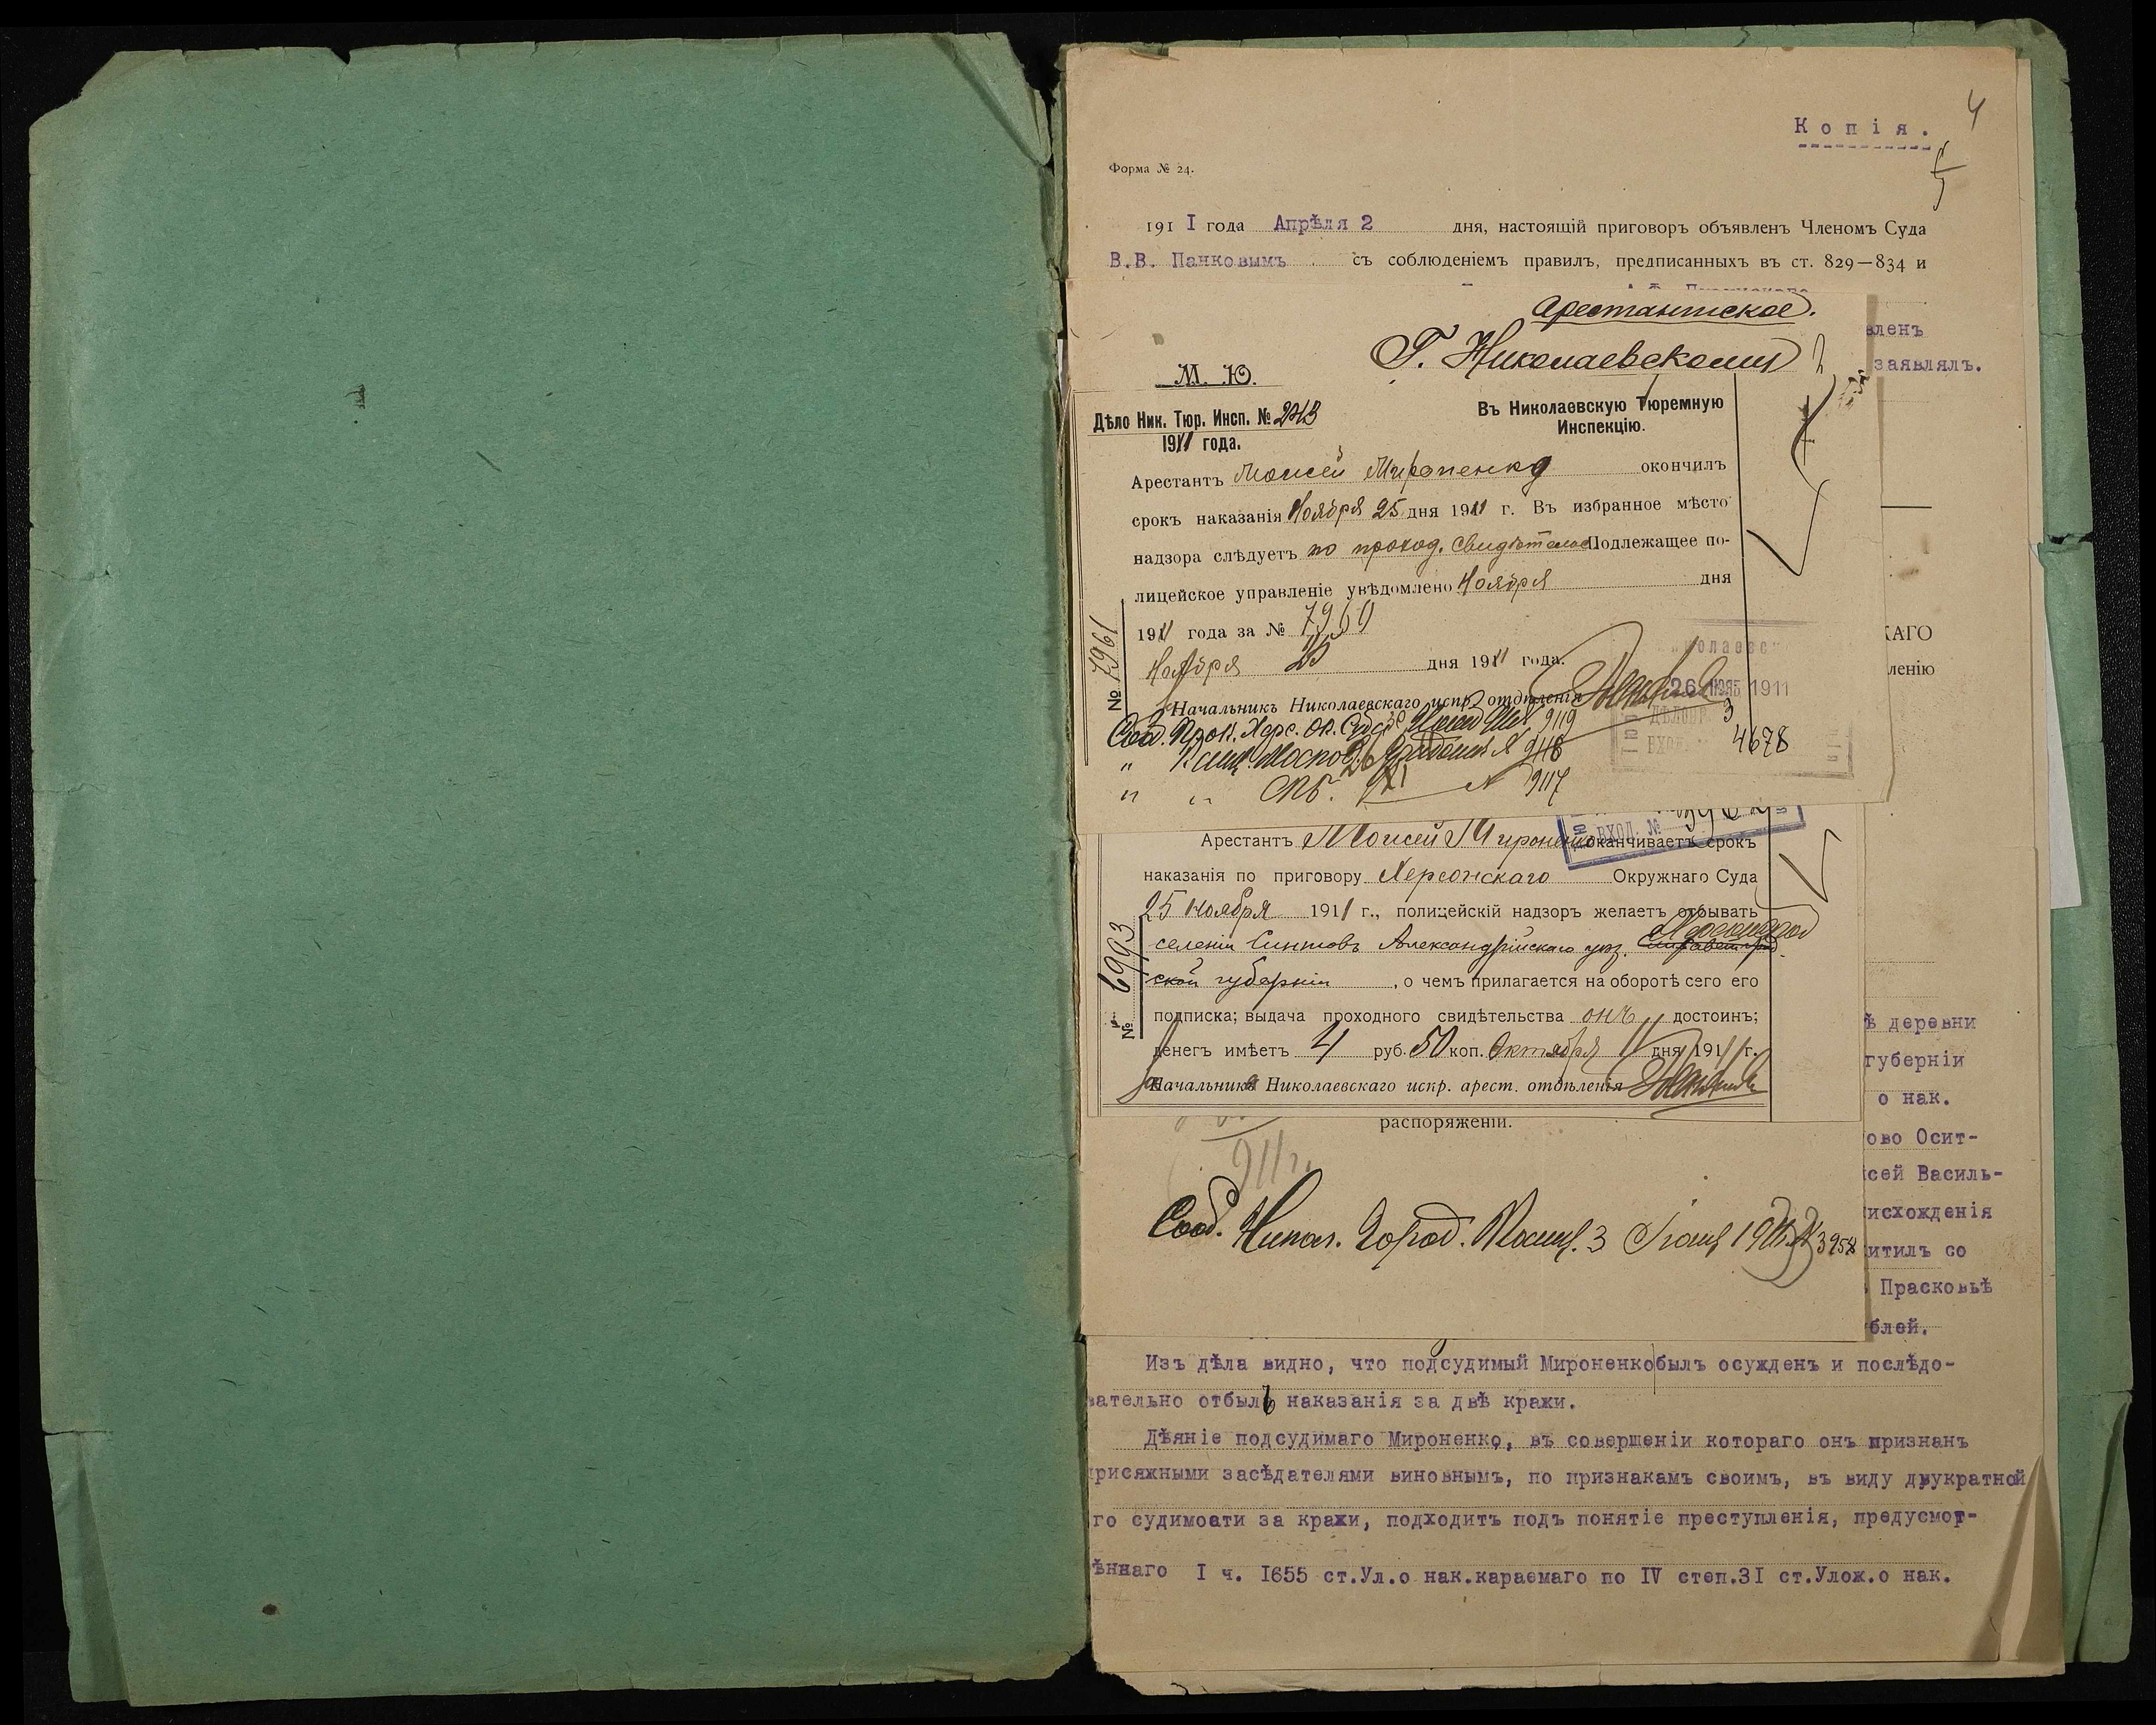 4
Копія.
Форма № 24.
1911 года Апрѣля 2 дня, настоящій приговоръ объявленъ Членомъ Суда
В.В. Панковымъ съ соблюденіемъ правилъ, предписанныхъ въ ст. 829—834 и
Арестантское.
вленъ
Г. Николаевскому
заявлялъ.
М. Ю.
Дѣло Ник. Тюр. Инсп. №
1911 года.
Въ Николаевскую Тюремную
Инспекцію.
Арестантъ Моисей Мироненко окончилъ
срокъ наказанія Ноября 25 дня 1911 г. Въ избранное мѣсто
надзора слѣдуетъ по проход. Подлежащее по-
лицейское управленіе увѣдомлено Ноября дня
1911 года за № 7960
КАГО
Ноября 25 дня 1911 года.
ленію
№ 7961
Начальникъ Николаевскаго испр. отдѣленія
26 НОЯБ 1911
Сооб. Прок. Херс. Ок. Суда 9119
9118
4678
" " СПб. № 9117
ВХОД. №
Арестантъ Моисей Мироненко оканчиваетъ срокъ
наказанія по приговору Херсонскаго Окружнаго Суда
25 ноября 1911 г., полицейскій надзоръ желаетъ отбывать
селеніи Александрійскаго уѣз.
ской губерніи, о чемъ прилагается на оборотѣ сего его
№ 6993
подписка; выдача проходного свидѣтельства онъ достоинъ;
ѣ деревни
денегъ имѣетъ 4 руб. 50 коп. Октября 11 дня 1911 г.
губерніи
Начальника Николаевскаго испр. арест. отдѣленія
о нак.
распоряженіи.
ово Осит-
911 г.
сей Василь-
Сооб. Никол. Город. 3 3958
исхожденія
итилъ со
Прасковьѣ
блей.
Изъ дѣла видно, что подсудимый Мироненко былъ осужденъ и послѣдо-
вательно отбылъ наказанія за двѣ кражи.
Дѣяніе подсудимаго Мироненко, въ совершеніи котораго онъ признанъ
присяжными засѣдателями виновнымъ, по признакамъ своимъ, въ виду двукратной
го судимости за кражи, подходитъ подъ понятіе преступленія, предусмот-
ѣннаго I ч. 1655 ст.Ул.о нак.караемаго по IV степ.31 ст.Улож.о нак.